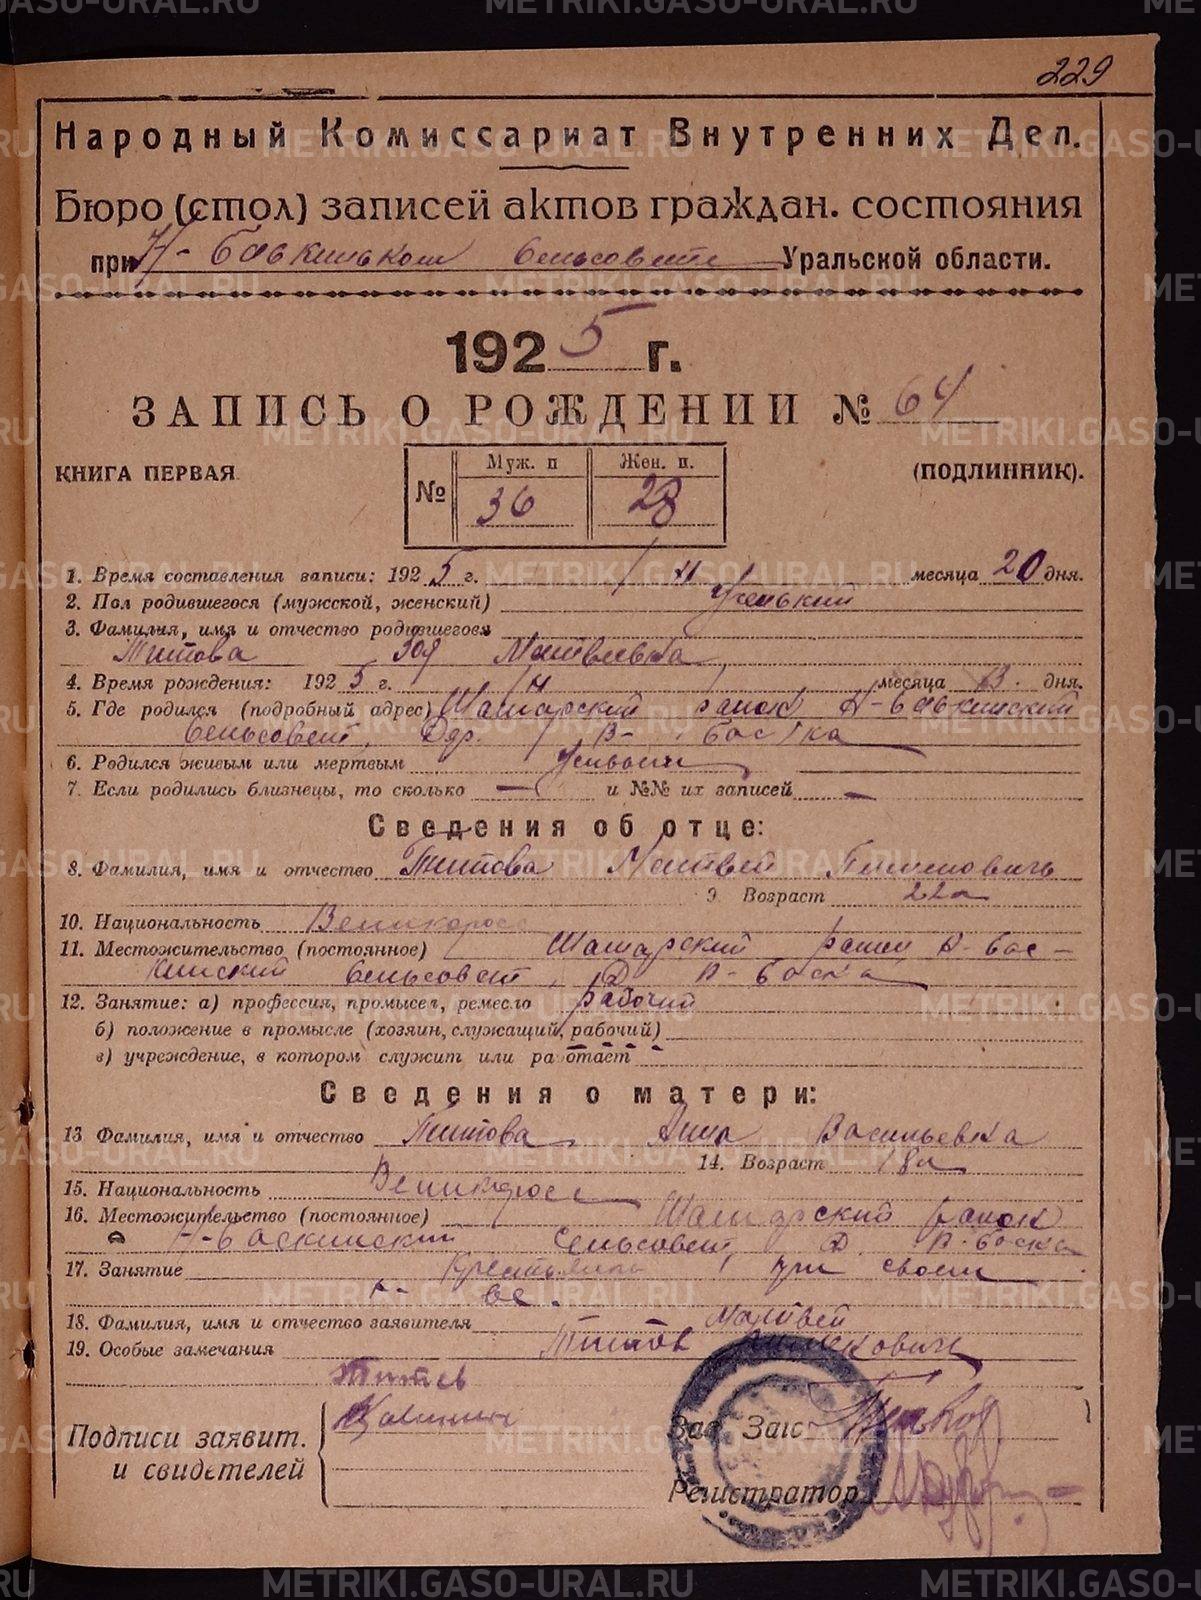 229
Народный Комиссариат Внутренних Дел.
Бюро (стол) записей актов граждан. состояния
при Н-баскинском сельсовете Уральской области.
1925 г.
ЗАПИСЬ О РОЖДЕНИИ № 64
КНИГА ПЕРВАЯ
(ПОДЛИННИК).
№ Муж. п Жен. п.
36 28
1. Время составления записи: 1925 г. месяца 20 дня.
2. Пол родившегося (мужской, женский) Женский
3. Фамилия, имя и отчество родившегося
Титова Зоя Матвеевна
4. Время рождения: 1925 г. месяца 13. дня.
5. Где родился (подробный адрес) Шамарский район Н-баскинский
сельсовет, Дер. В-баска
6. Родился живым или мертвым живым
7. Если родились близнецы, то сколько — и №№ их записей —
Сведения об отце:
8. Фамилия, имя и отчество Титова Матвей
9. Возраст 22л
10. Национальность Великоросс
11. Местожительство (постоянное) Шамарский район Н-бас-
кинский сельсовет, Д В-баска
12. Занятие: а) профессия, промысел, ремесло рабочий
б) положение в промысле (хозяин, служащий, рабочий)
в) учреждение, в котором служит или работает
Сведения о матери:
13 Фамилия, имя и отчество Титова Анна Васильевна
14. Возраст 18л
15. Национальность Великоросс
16. Местожительство (постоянное) Шамарский район
Н-баскинский сельсовет, Д. В-баска
17. Занятие Крестьянка, при своем
х-ве.
18. Фамилия, имя и отчество заявителя Матвей
19. Особые замечания Титов
Титов
Подписи заявит.
и свидетелей
Зав. Загс
Регистратор
METRIKI.GASO-URAL.RU